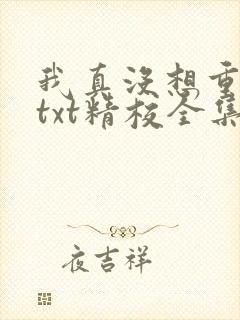 我真没想重
txt精校全集
夜吉祥